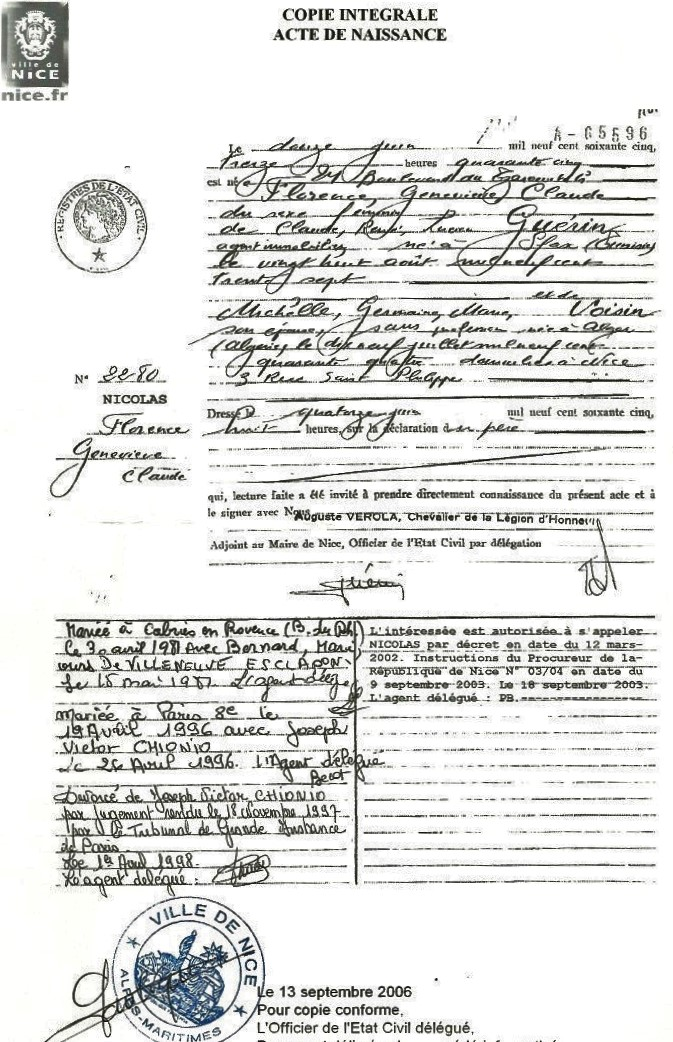 COPIE INTEGRALE
ACTE DE NAISSANCE
ville de
NiCE
nice.fr
A - 65596
Le douze juin mil neuf cent soixante cinq,
treize heures quarante cinq
est née 84 Boulevard du
Florence, Geneviève, Claude
du sexe féminin
de Claude, René, Lucien Guérin
agent immobilier né à Sfax (Tunisie)
le vingt huit août mil neuf cent
trente sept
et de
Michelle, Germaine, Marie, Voisin
son épouse, sans profession née à Alger
(Algérie) le dix neuf juillet mil neuf cent
quarante quatre domiciliés à Nice
3 Rue Saint Philippe
REGISTRES DE L'ETAT CIVIL
N° 2280
NICOLAS
Florence
Geneviève
Claude
Dressé le quatorze juin mil neuf cent soixante cinq,
huit heures, sur la déclaration du père
qui, lecture faite a été invité à prendre directement connaissance du présent acte et à
le signer avec Nous
Auguste VEROLA, Chevalier de la Légion d'Honneur
Adjoint au Maire de Nice, Officier de l'Etat Civil par délégation
Mariée à Cabriès en Provence (B. du Rh)
le 30 avril 1987 avec Bernard, Marie
DE VILLENEUVE ESCLAPON.
Le 15 mai 1987. L'agent délégué
Mariée à Paris 8e le
19 Avril 1996 avec Joseph
Victor CHIONIO
Le 26 Avril 1996. L'Agent délégué
Divorcé de Joseph Victor CHIONIO
par jugement rendu le 18 novembre 1997
par le Tribunal de Grande Instance
de Paris.
Le 1er Avril 1998.
L'agent délégué :
L'intéressée est autorisée à s'appeler
NICOLAS par décret en date du 12 mars
2002. Instructions du Procureur de la
République de Nice N° 03/04 en date du
9 septembre 2003. Le 18 septembre 2003.
L'agent délégué : PB.
VILLE DE NICE
ALPES-MARITIMES
Le 13 septembre 2006
Pour copie conforme,
L'Officier de l'Etat Civil délégué,